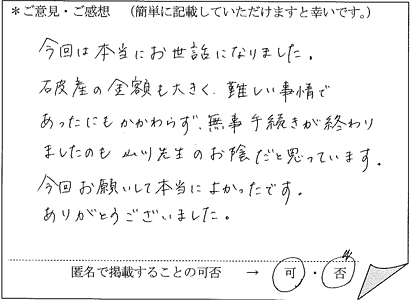 *ご意見・ご感想 (簡単に記載していただけますと幸いです。)
今回は本当にお世話になりました。
破産の金額も大きく、難しい事情で
あったにもかかわらず、無事手続きが終わり
ましたのも 山川先生のお陰だと思っています。
今回お願いして本当によかったです。
ありがとうございました。
匿名で掲載することの可否 → 可 ・ 否